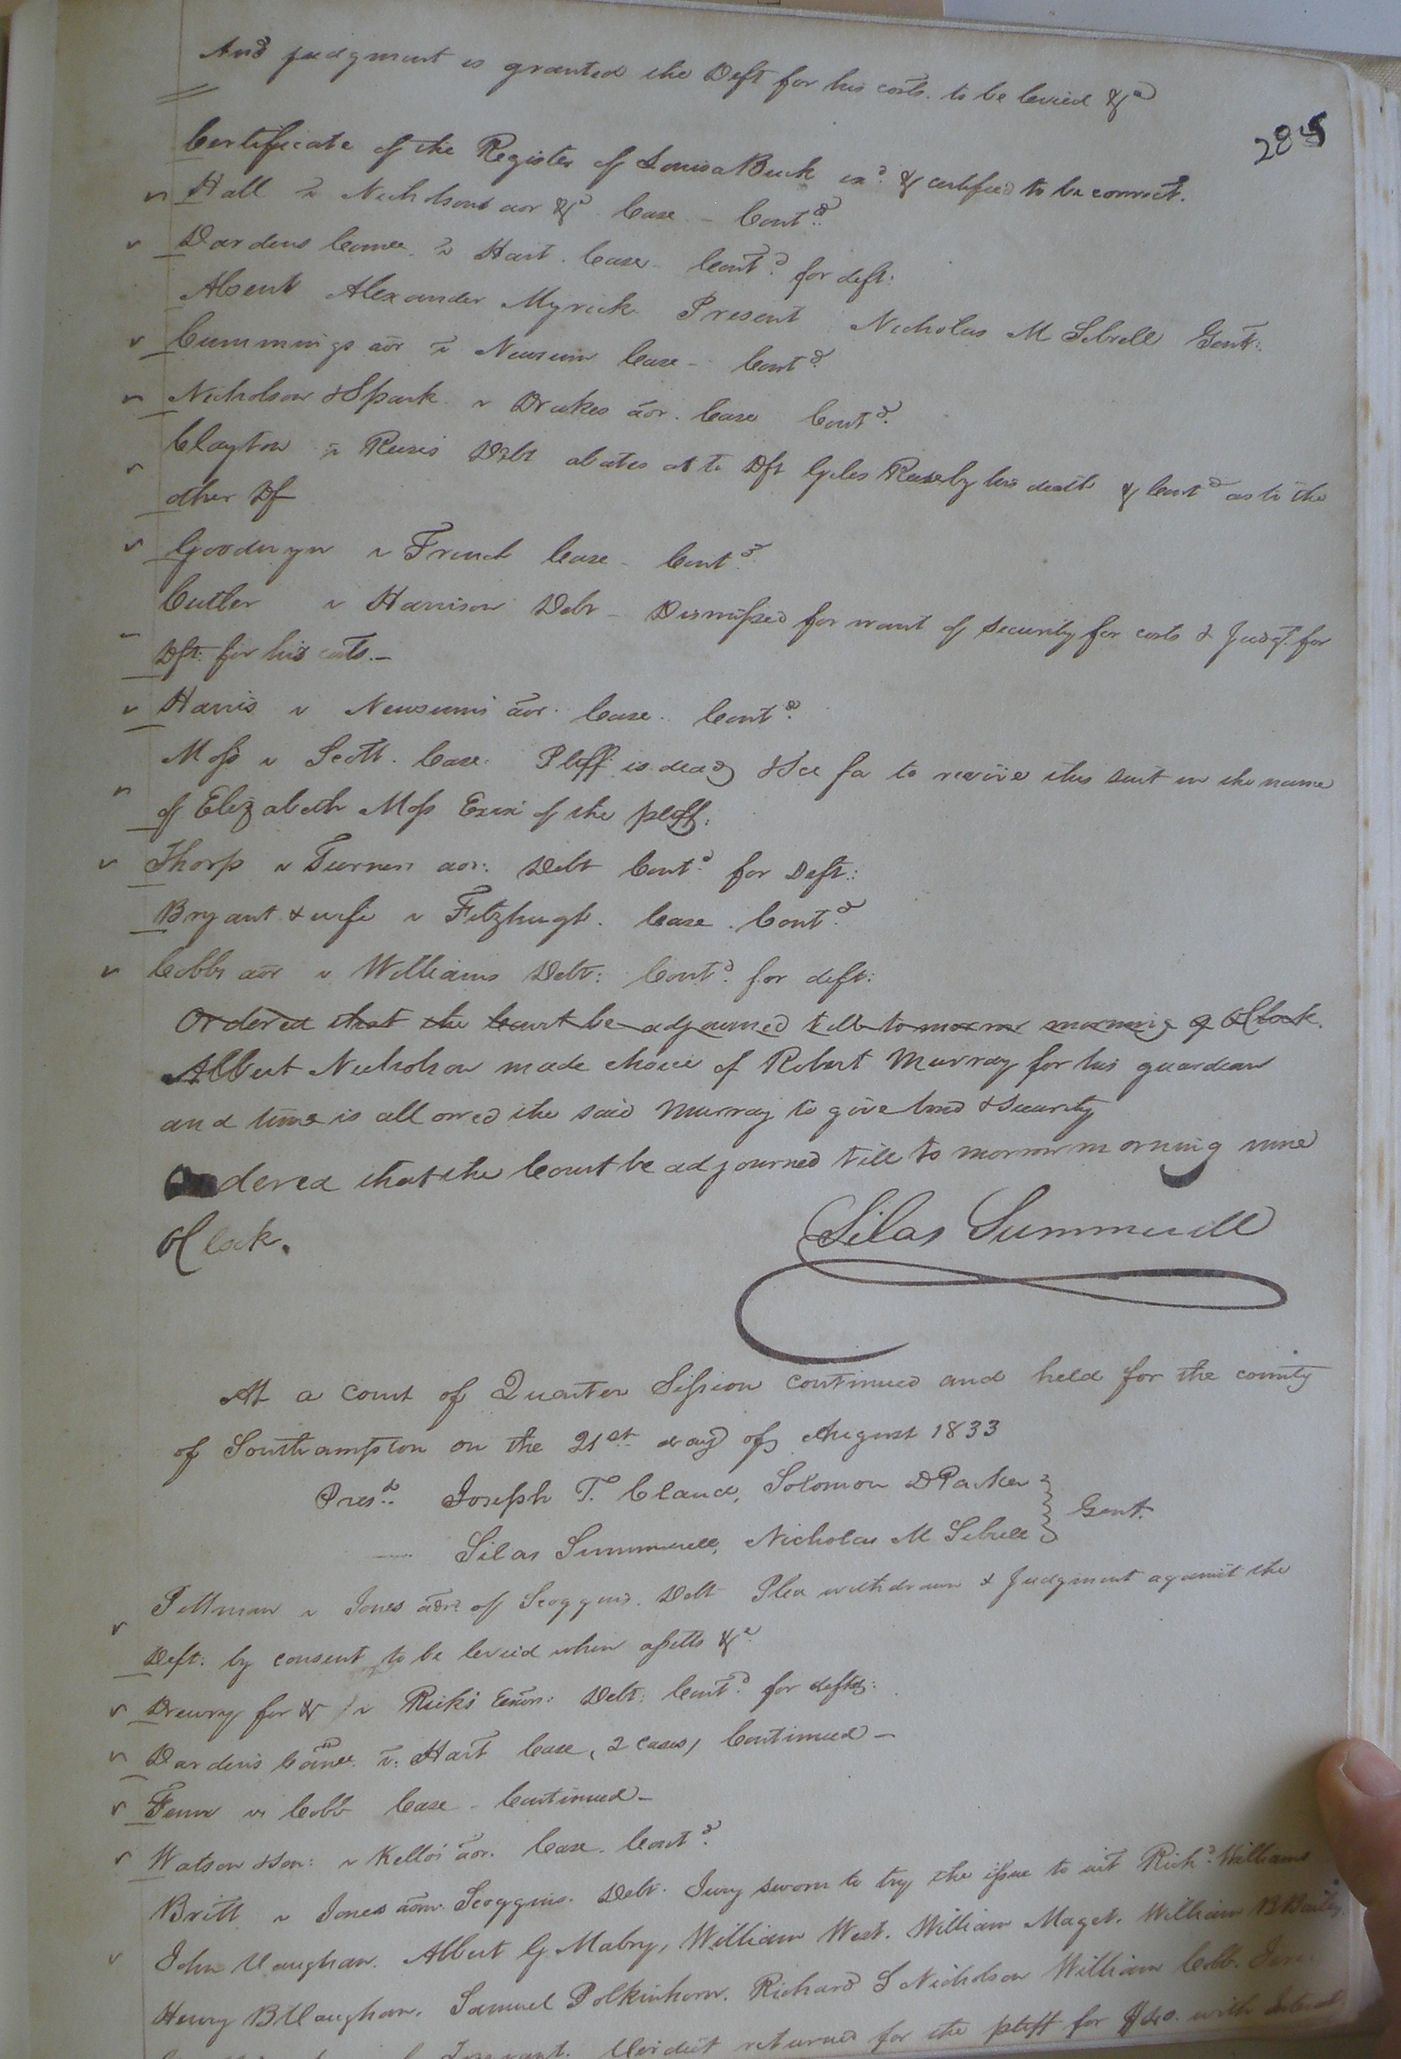 And judgment is granted the Deft for his costs. to be levied &c
285
Certificate of the Register of Louisa Buck exd. & certified to be correct.
Hall v Nicholsons aor &c Case - Contd.
Dardens Comee. v Hart. Case - Contd. for deft:
Absent Alexander Myrick Present Nicholas M Sebrell Gent:
Cummings aor v Newsum Case - Contd.
Nicholson & Spark v Drakes aor. Case Contd.
Clayton v Reeses Debt abates as to Dft Giles Reese by his death & Contd as to the
other Df
Goodwyn v French Case - Contd.
Cutler v Harrison Debt - Dismissed for want of security for costs & Judgt. for
Dft: for his costs. -
Harris v Newsums aor. Case. Contd.
Moss v Scott. Case. Pltff is dead & Sci fa to revive this suit in the name
of Elizabeth Moss Exix of the pltff.
Thorp v Turners aor: Debt Contd. for Deft.:
Bryant & wife v Fitzhugh. Case. Contd.
Cobbs aor v Williams Debt: Contd. for deft:
Ordered that the Court be adjourned till to morrow morning 9 OClock.
Albert Nicholson made choice of Robert Murray for his guardian
and time is allowed the said Murray to give bond & security
Ordered that the Court be adjourned till to morrow morning nine
OClock.
Silas Summerell
At a Court of Quarter Session continued and held for the county
of Southampton on the 21st day of August 1833
Presd.. Joseph T. Claud, Solomon D Parker
Gent.
Silas Summerell, Nicholas M Sebrell
Tillman v Jones adr. of Scoggins. Debt Plea withdrawn & Judgment against the
Deft: by consent to be levied when assetts &c.
Drewry for &c v Ricks' Exors: Debt: Contd. for defts:
Dardens Comee. v: Hart Case, 2 cases, Continued -
Fenn vs Cobb Case - Continued -
Watson & Son: v Kello's aor. Case. Contd.
Britt v Jones adm. Scoggins. Debt. Jury sworn to try the issue to wit Richd. Williams
John Vaughan. Albert G Mabry, William West. William Maget. William B Bailey.
Henry B Vaughan. Samuel Polkinhorn. Richard S Nicholson William Cobb.
Verdict returned for the pltff for $40. with Interest